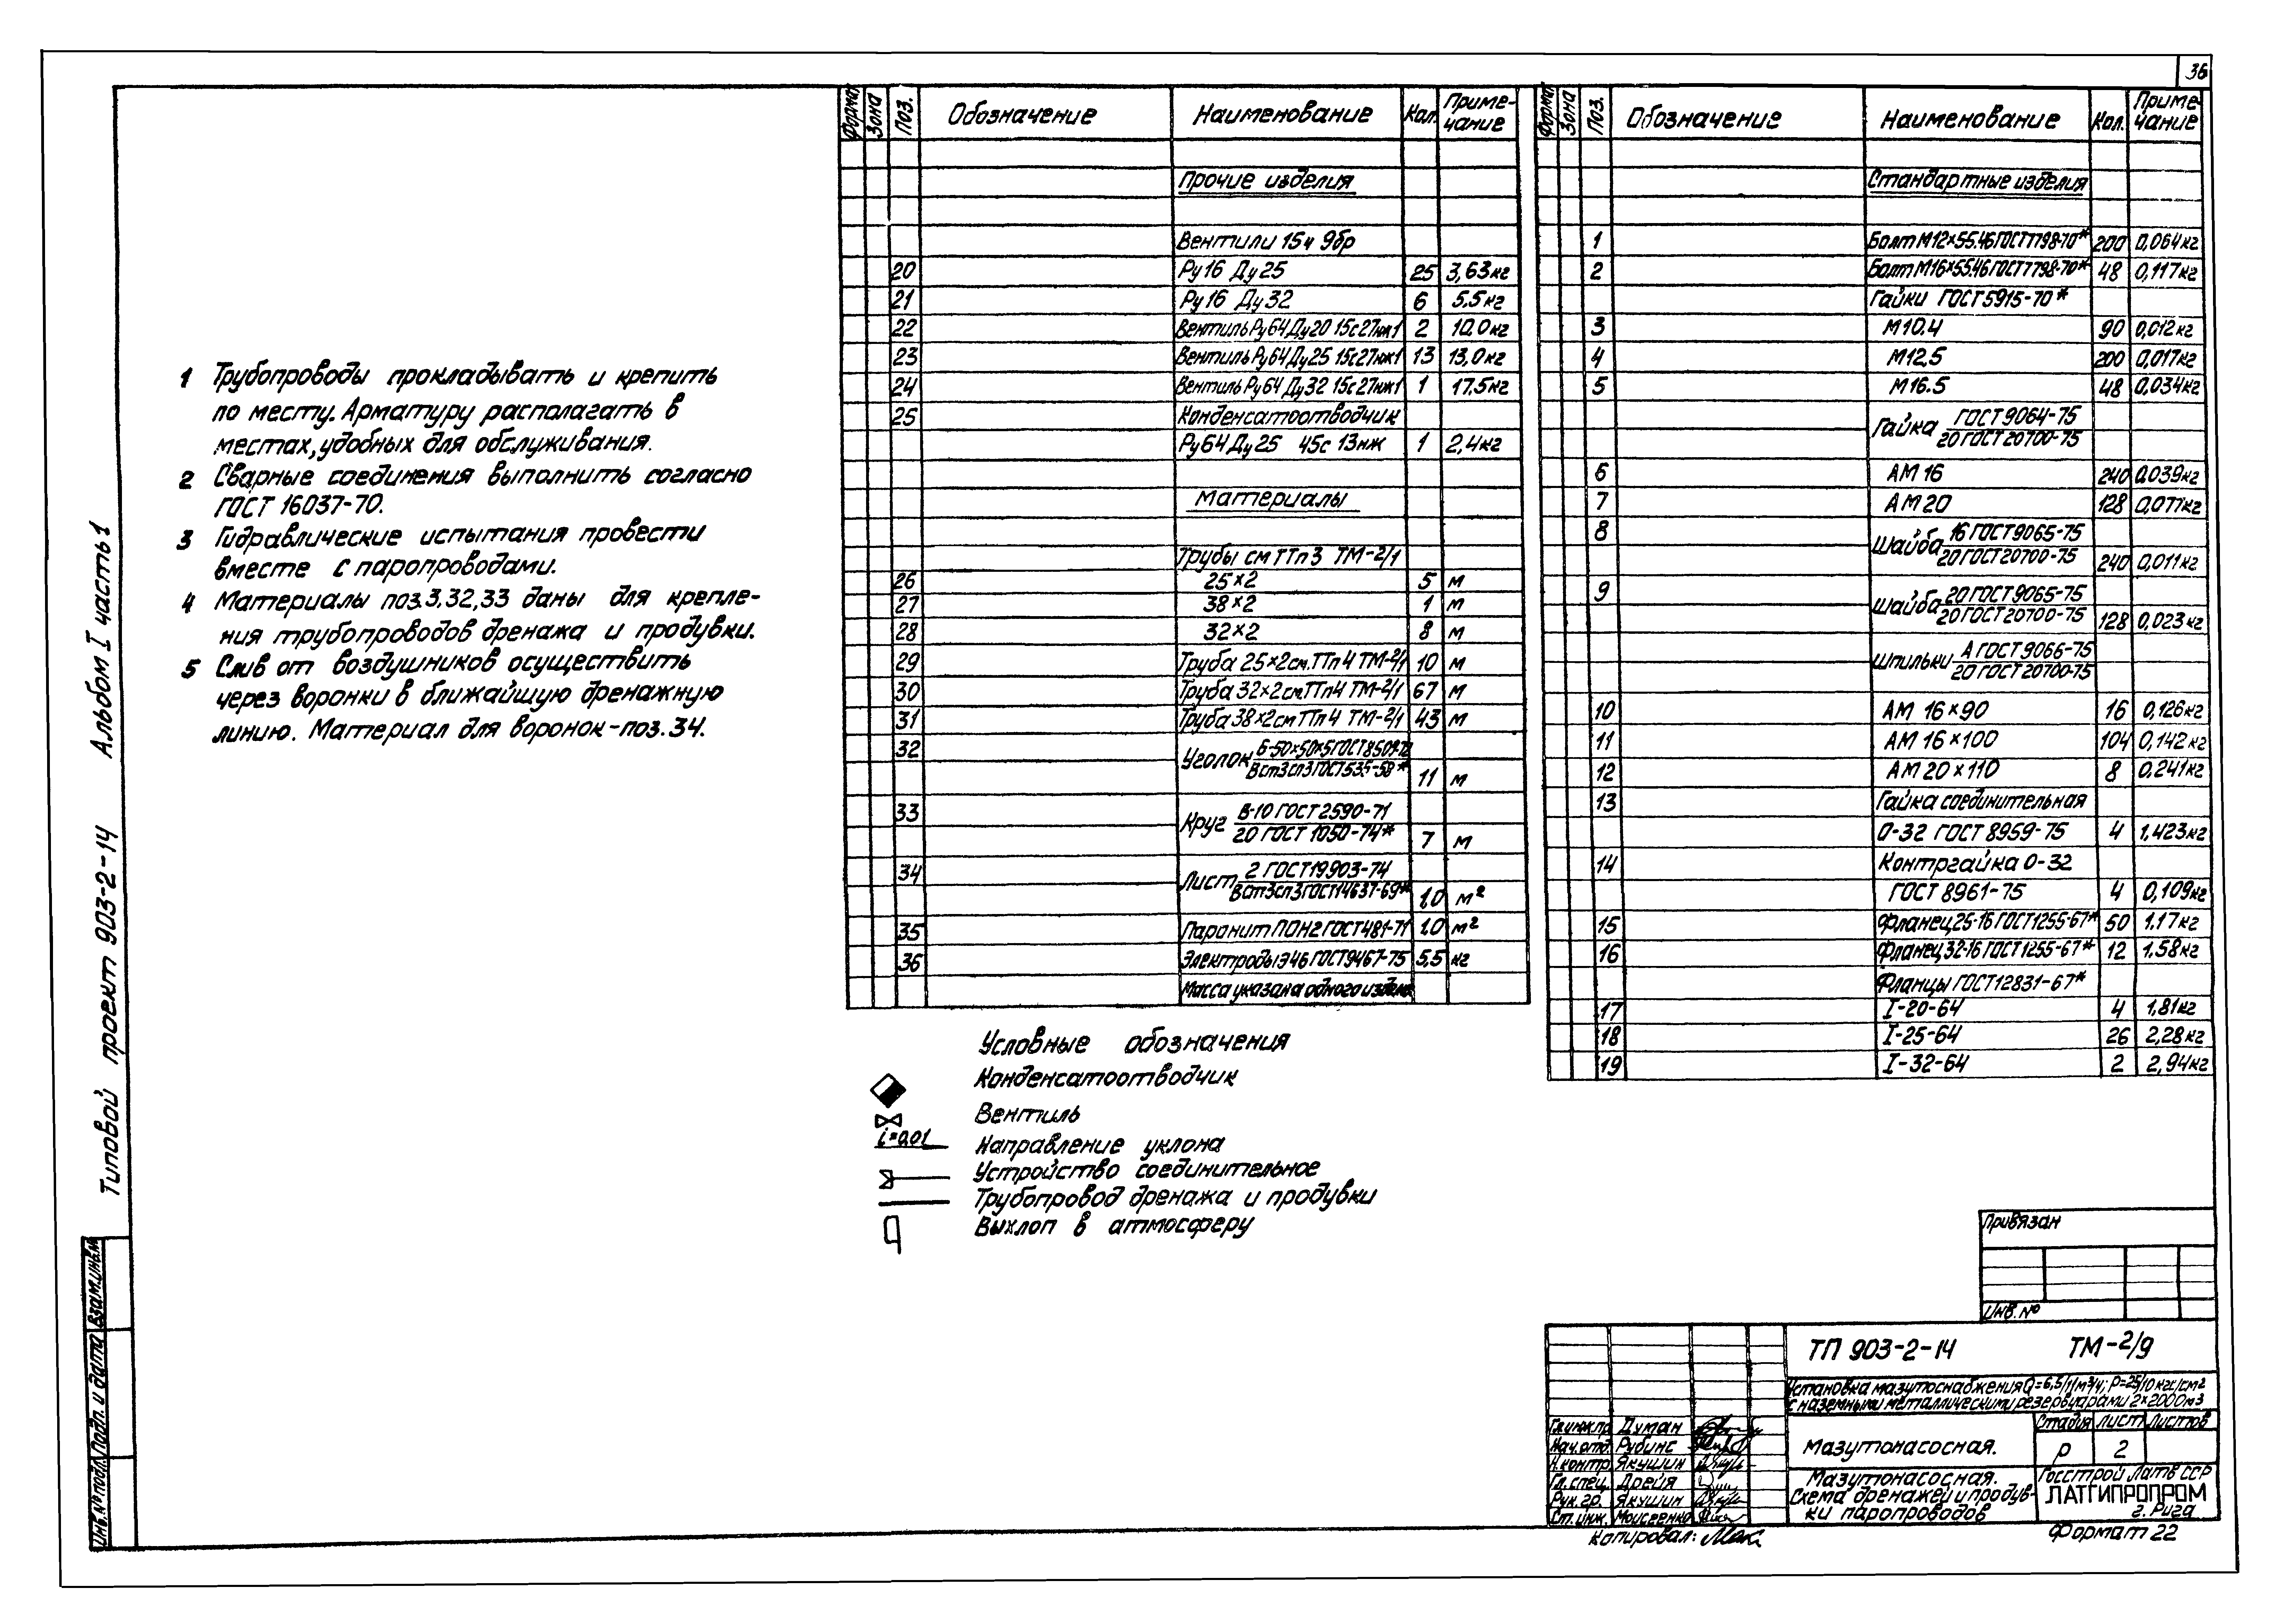 36
1 Трубопроводы прокладывать и крепить
по месту. Арматуру располагать в
местах, удобных для обслуживания.
2 Сварные соединения выполнить согласно
ГОСТ 16037-70.
3 Гидравлические испытания провести
вместе с паропроводами.
4 Материалы поз.3,32,33 даны для крепле-
ния трубопроводов дренажа и продувки.
5 Слив от воздушников осуществить
через воронки в ближайшую дренажную
линию. Материал для воронок-поз.34.
Формат Зона Поз. Обозначение Наименование Кол. Приме-
чание
Прочие изделия
Вентили 15ч 9бр
20 Ру16 Ду25 25 3,63кг
21 Ру16 Ду32 6 5,5кг
22 Вентиль Ру64 Ду20 15с27нж1 2 10,0кг
23 Вентиль Ру64 Ду25 15с27нж1 13 13,0кг
24 Вентиль Ру64 Ду32 15с27нж1 1 17,5кг
25 Конденсатоотводчик
Ру64 Ду25 45с 13нж 1 2,4кг
Материалы
Трубы см ТТп3 ТМ-2/1
26 25×2 5 м
27 38×2 1 м
28 32×2 8 м
29 Труба 25×2см.ТТп4 ТМ-2/1 10 м
30 Труба 32×2смТТп4 ТМ-2/1 67 м
31 Труба 38×2см ТТп4 ТМ-2/1 43 м
32 Уголок Б-50×50×5 ГОСТ 8509-72
Вст3сп3 ГОСТ 535-58* 11 м
33 Круг В-10 ГОСТ 2590-71
20 ГОСТ 1050-74* 7 м
34 Лист 2 ГОСТ 19903-74
Вст3сп3 ГОСТ 14637-69* 1,0 м²
35 Паронит ПОН2 ГОСТ 481-71 1,0 м²
36 Электроды Э46 ГОСТ 9467-75 5,5 кг
Масса указана одного издел.
Формат Зона Поз. Обозначение Наименование Кол. Приме-
чание
Стандартные изделия
1 Болт М12×55.46 ГОСТ 7798-70* 200 0,064кг
2 Болт М16×55.46 ГОСТ 7798-70* 48 0,117кг
Гайки ГОСТ 5915-70*
3 М10.4 90 0,012кг
4 М12.5 200 0,017кг
5 М16.5 48 0,034кг
Гайка ГОСТ 9064-75
20 ГОСТ 20700-75
6 АМ 16 240 0,039кг
7 АМ 20 128 0,077кг
8 Шайба 16 ГОСТ 9065-75
20 ГОСТ 20700-75 240 0,011кг
9 Шайба 20 ГОСТ 9065-75
20 ГОСТ 20700-75 128 0,023кг
Шпильки А ГОСТ 9066-75
20 ГОСТ 20700-75
10 АМ 16×90 16 0,126кг
11 АМ 16×100 104 0,142кг
12 АМ 20×110 8 0,241кг
13 Гайка соединительная
О-32 ГОСТ 8959-75 4 1,423кг
14 Контргайка О-32
ГОСТ 8961-75 4 0,109кг
15 Фланец 25-16 ГОСТ 1255-67* 50 1,17кг
16 Фланец 32-16 ГОСТ 1255-67* 12 1,58кг
Фланцы ГОСТ 12831-67*
17 I-20-64 4 1,81кг
18 I-25-64 26 2,28кг
19 I-32-64 2 2,94кг
Условные обозначения
Конденсатоотводчик
Вентиль
i=0,01 Направление уклона
Устройство соединительное
Трубопровод дренажа и продувки
Выхлоп в атмосферу
Типовой проект 903-2-14 Альбом I часть 1
Инв.№ подл. Подп. и дата Взам.инв.№
Привязан
Инв. №
ТП 903-2-14 ТМ-2/9
Установка мазутоснабжения Q=6,5/11м³/ч; P=25/10 кгс/см²
с наземными металлическими резервуарами 2×2000м³
Гл.инж.пр. Думан
Нач.отд. Рубинс
Н.контр. Якушин
Гл.спец. Дрейя
Рук.гр. Якушин
Ст.инж. Моисеенко
Мазутонасосная.
Стадия Лист Листов
Р 2
Мазутонасосная.
Схема дренажей и продув-
ки паропроводов
Госстрой Латв ССР
ЛАТГИПРОПРОМ
г. Рига
Копировал:
Формат 22